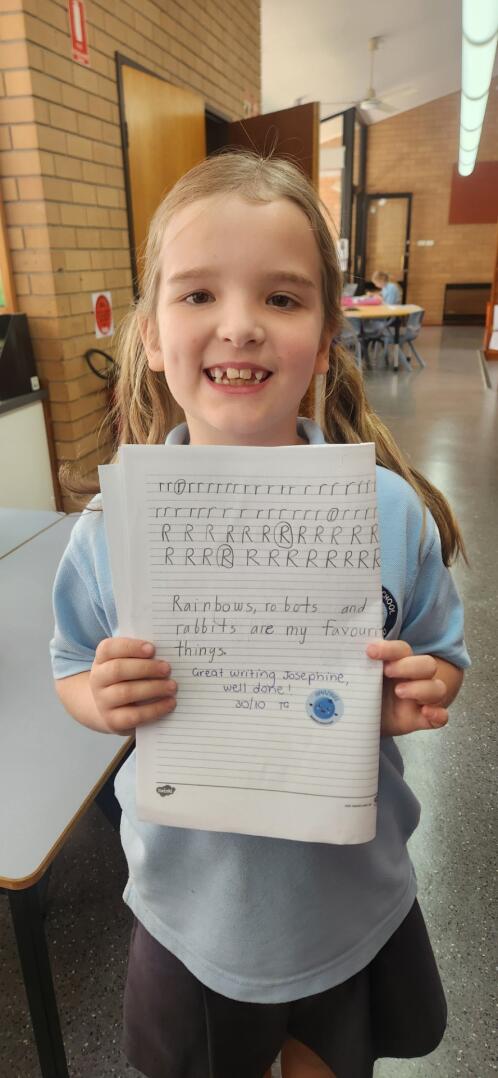 rr r rrrrrr r r r rr r r r r r r
rrr rrrr r r r r r r r r r r r r r
R R R R R R R R R R R R
R R R R R R R R R R R R
Rainbows, robots and
rabbits are my favouri
things.
Great writing Josephine,
well done!
30/10 TG
twinkl
SCHOOL